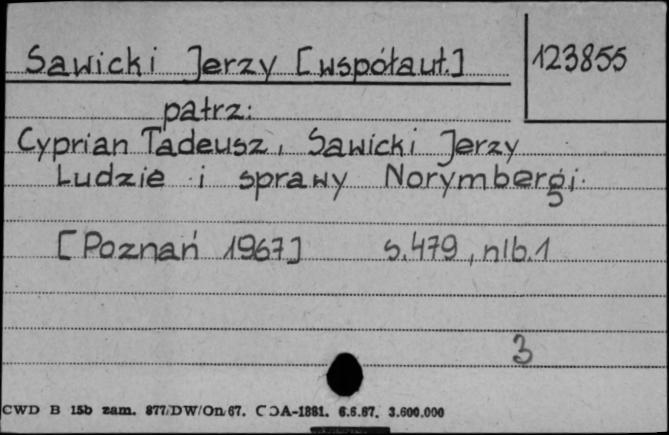 Sawicki Jerzy [współaut.] 123855
patrz:
Cyprian Tadeusz, Sawicki Jerzy
Ludzie i sprawy Norymbergi.
[Poznań 1967] s.479, nlb.1
3
CWD B 15b zam. 877/DW/On/67. COA-1881. 6.5.67. 3.600.000